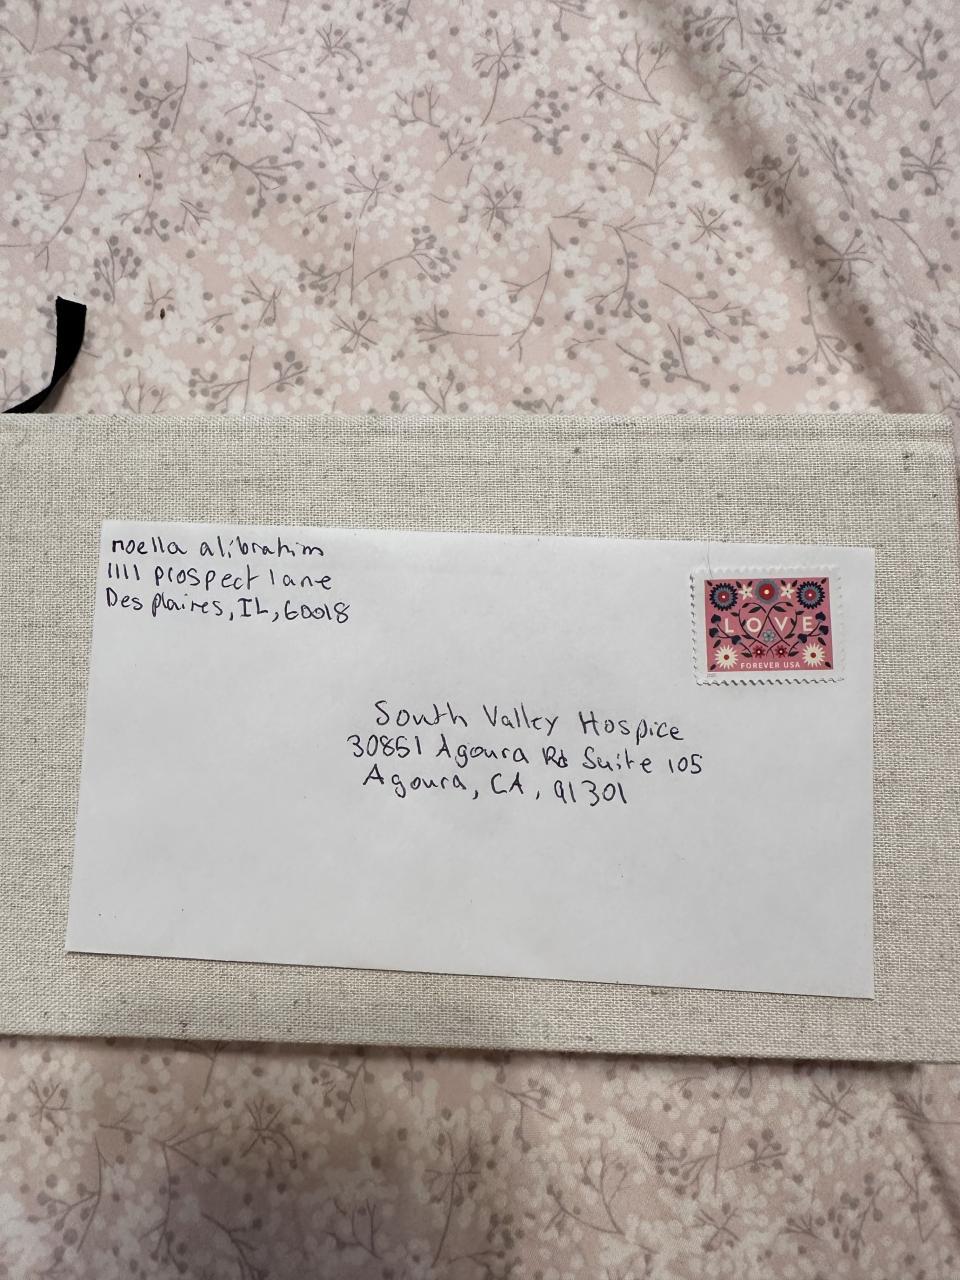 noella alibrahim
1111 prospect lane
Des plaines, IL, 60018
LOVE
FOREVER USA
South Valley Hospice
30851 Agoura Rd Suite 105
Agoura, CA, 91301